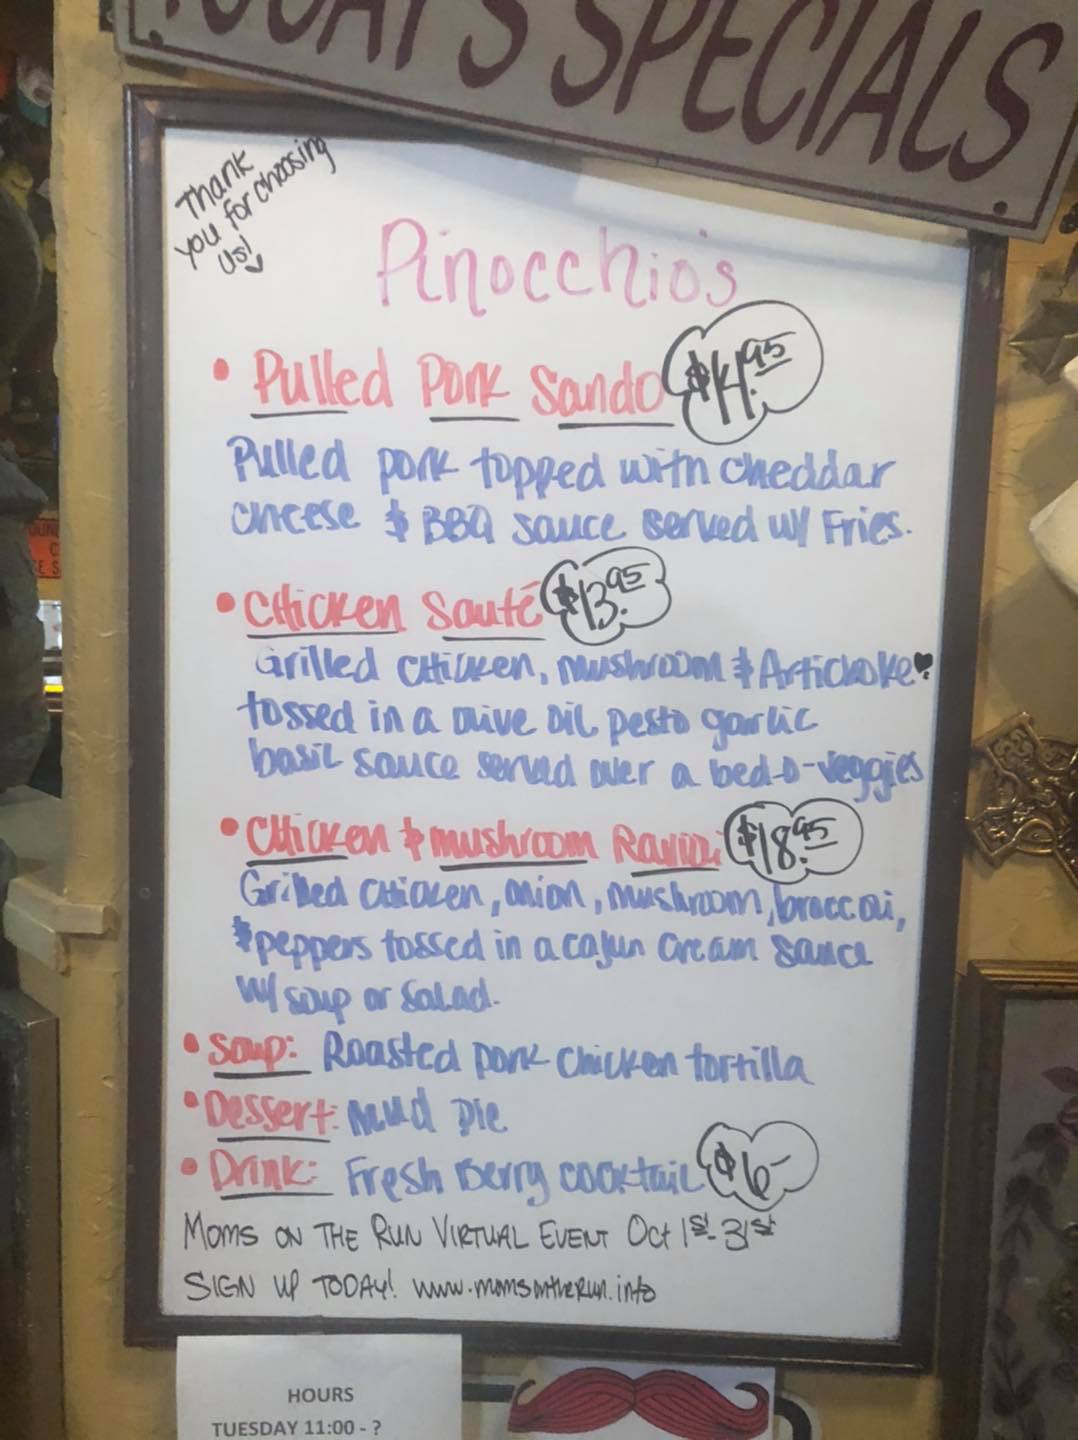 TODAY'S SPECIALS
Thank
you for choosing
us!
Pinocchio's
• Pulled Pork Sando $14.95
Pulled pork topped with cheddar
cheese & BBQ sauce served w/ Fries.
• Chicken Sauté $13.95
Grilled chicken, mushroom & Artichoke ♥
tossed in a olive oil pesto garlic
basil sauce served over a bed-o-veggies
• Chicken & mushroom Ravioli $18.95
Grilled chicken, onion, mushroom, broccoi,
& peppers tossed in a cajun cream sauce
w/ soup or salad.
• Soup: Roasted pork chicken tortilla
• Dessert: Mud Pie
• Drink: Fresh Berry cocktail $6-
MOMS ON THE RUN VIRTUAL EVENT Oct 1st - 31st
SIGN UP TODAY! www.momsontheRun.info
HOURS
TUESDAY 11:00 - ?